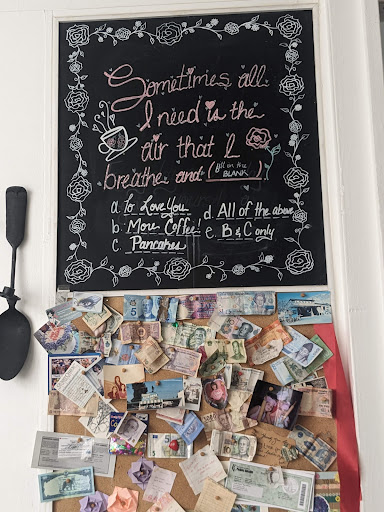 Sometimes all
I need is the
air that I
breathe and (fill in the BLANK)
a. to Love You
b. More Coffee
c. Pancakes
d. All of the above
e. B & C only